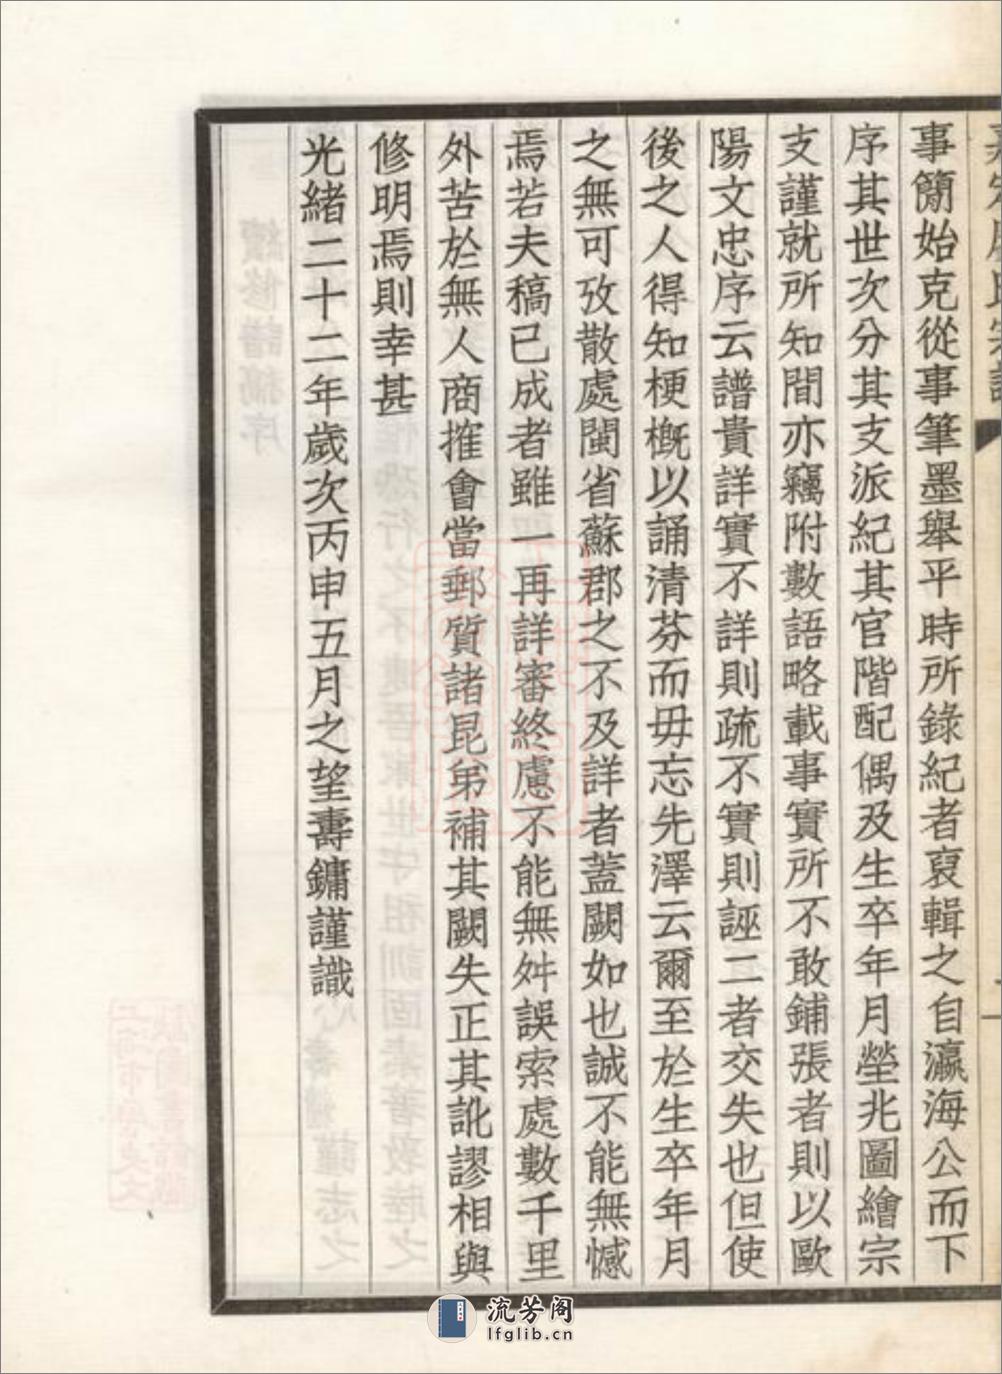 事簡始克從事筆墨舉平時所錄紀者裒輯之自瀛海公而下
序其世次分其支派紀其官階配偶及生卒年月塋兆圖繪宗
支謹就所知間亦竊附數語略載事實所不敢鋪張者則以歐
陽文忠序云譜貴詳實不詳則疏不實則誣二者交失也但使
後之人得知梗概以誦清芬而毋忘先澤云爾至於生卒年月
之無可攷散處閩省蘇郡之不及詳者蓋闕如也誠不能無憾
焉若夫稿已成者雖一再詳審終慮不能無舛誤索處數千里
外苦於無人商搉會當郵質諸昆弟補其闕失正其訛謬相與
修明焉則幸甚
光緒二十二年歲次丙申五月之望壽鏞謹識
流芳阁
lfglib.cn